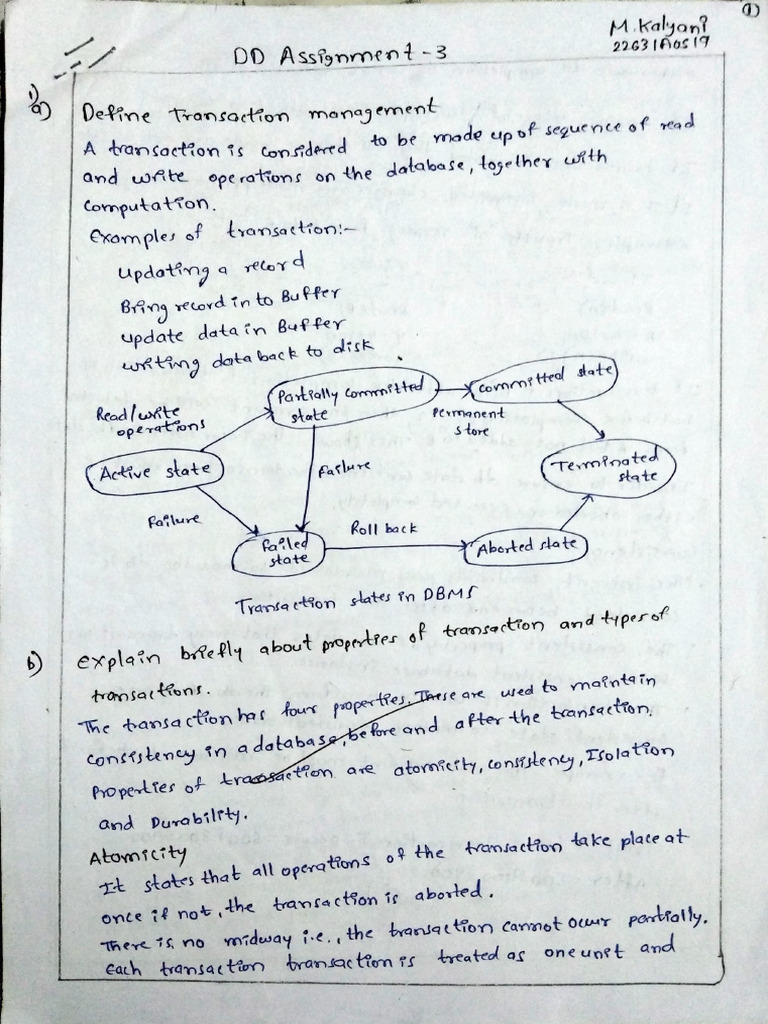 1
M. Kalyani
22631A0519
DD Assignment-3
1)
a) Define Transaction management
A transaction is considered to be made up of sequence of read
and write operations on the database, together with
computation.
Examples of transaction:-
Updating a record
Bring record in to Buffer
update data in Buffer
writing data back to disk
Partially committed
state
committed state
Read/write
operations
Permanent
store
Active state
Failure
Terminated
state
Failure
Failed
state
Roll back
Aborted state
Transaction states in DBMS
b) Explain briefly about properties of transaction and types of
transactions.
The transaction has four properties. These are used to maintain
consistency in a database, before and after the transaction.
Properties of transaction are atomicity, consistency, Isolation
and Durability.
Atomicity
It states that all operations of the transaction take place at
once if not, the transaction is aborted.
There is no midway i.e., the transaction cannot occur partially.
Each transaction transaction is treated as one unit and